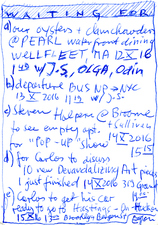 WAITING FOR
a) our oysters + clamchowders
@ PEARL waterfront dining
WELLFLEET, MA 12 X 16
w/ J-S, OLGA, Odin
b) departure BUS NP → NYC
13 X 2016 w/ J-S.
c) Steven Halpern @ Broome
to see empty apt.
for "POP-UP" show
14 X 2016
15 15
d) for Carlos to discuss
10 new Devandalizing Art pieces
I just finished 14 X 2016
e) Carlos to get his car
ready to go to Hastings-On-Hudson
15 X